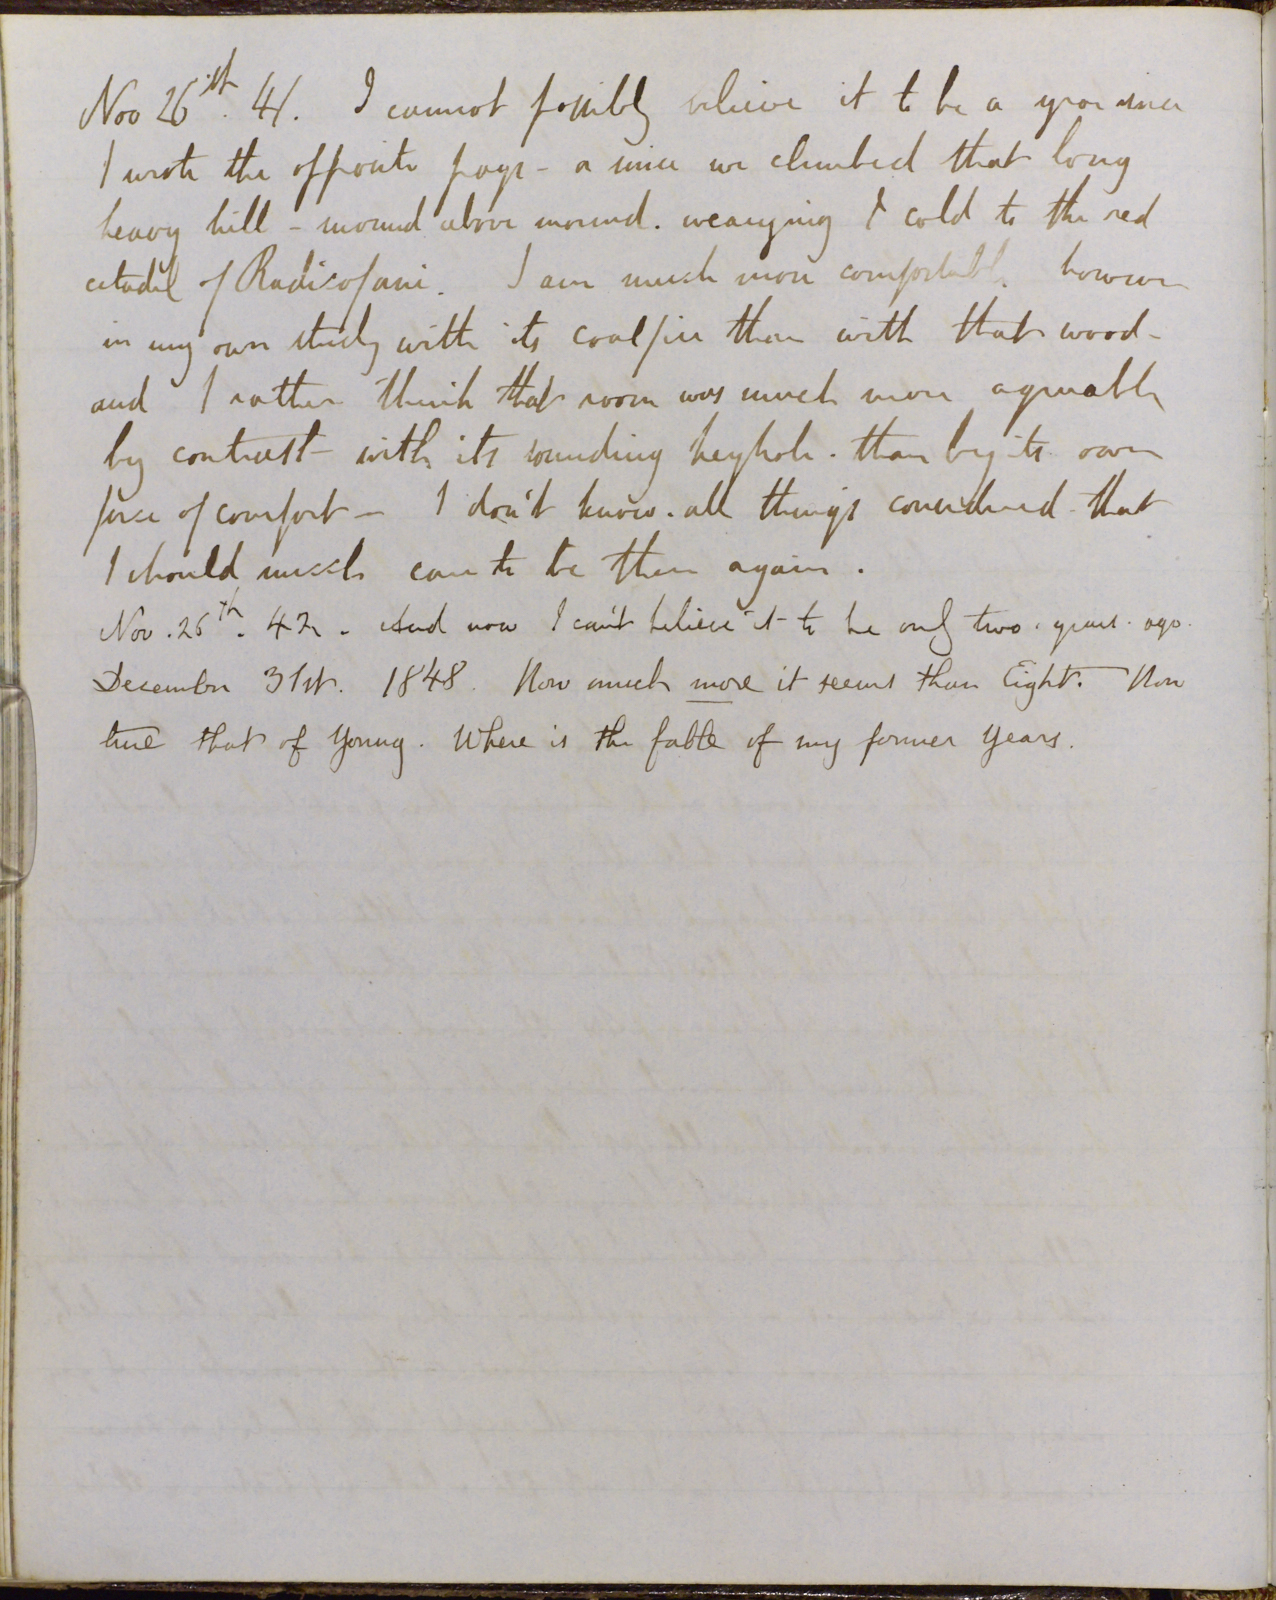 Nov 26st. 41. I cannot possibly believe it to be a year since
I wrote the opposite page - or since we climbed that long
heavy hill - mound above mound. wearying & cold to the red
citadel of Radicofani. I am much more comfortable, however
in my own study with its coalfire than with that wood -
and I rather think that room was much more agreeable
by contrast - with its sounding keyhole. than by its own
force of comfort - I don't know. all things considered - that
I should much care to be there again.
Nov. 26th. 42. And now I can't believe it to be only two. years. ago.
December 31st. 1848. How much more it seems than Eight. How
true that of Young. Where is the fable of my former years.